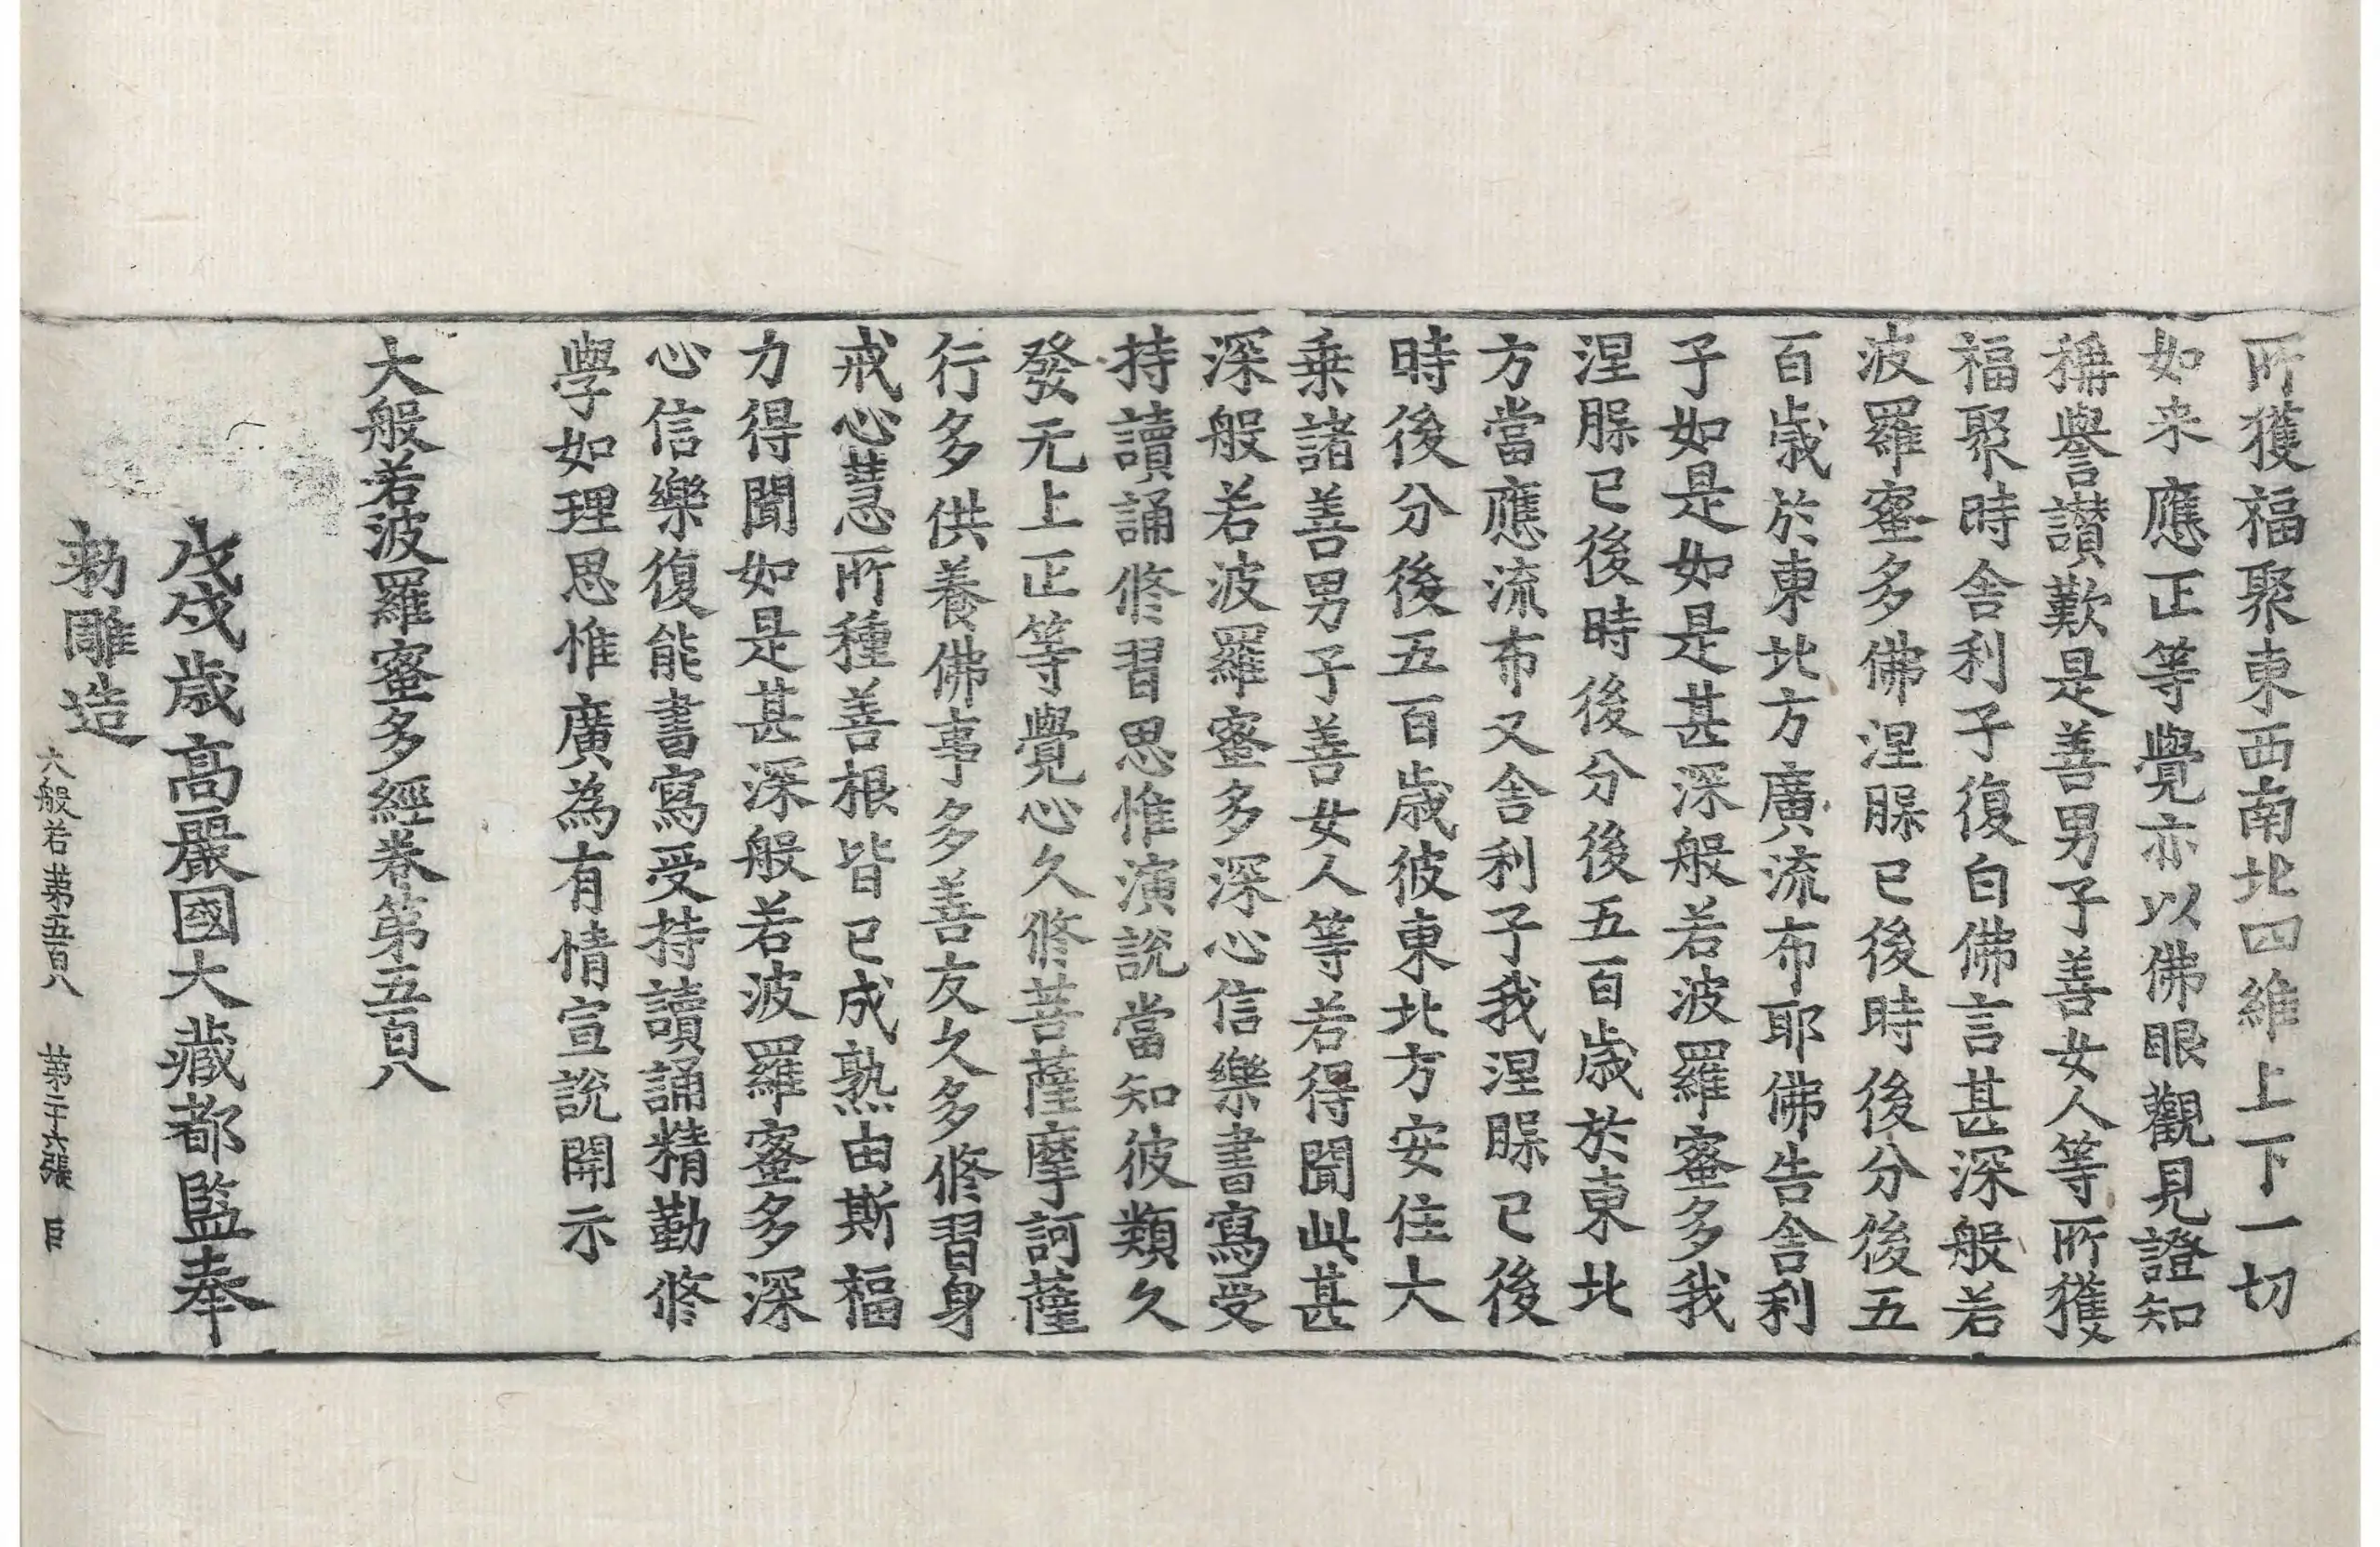 所獲福聚東西南北四維上下一切
如来應正等覺亦以佛眼觀見證知
稱譽讃歎是善男子善女人等所獲
福聚時舎利子復白佛言甚深般若
波羅蜜多佛涅槃已後時後分後五
百歳於東北方廣流布耶佛告舎利
子如是如是甚深般若波羅蜜多我
涅槃已後時後分後五百歳於東北
方當應流布又舎利子我涅槃已後
時後分後五百歳彼東北方安住大
乗諸善男子善女人等若得聞此甚
深般若波羅蜜多深心信樂書寫受
持讀誦修習思惟演說當知彼類久
發无上正等覺心久修菩薩摩訶薩
行多供養佛事多善友久多修習身
戒心慧所種善根皆已成熟由斯福
力得聞如是甚深般若波羅蜜多深
心信樂復能書寫受持讀誦精勤修
學如理思惟廣為有情宣說開示
大般若波羅蜜多經卷第五百八
戊戌歳高麗國大藏都監奉
勅雕造
大般若第五百八 第二十六張 巨